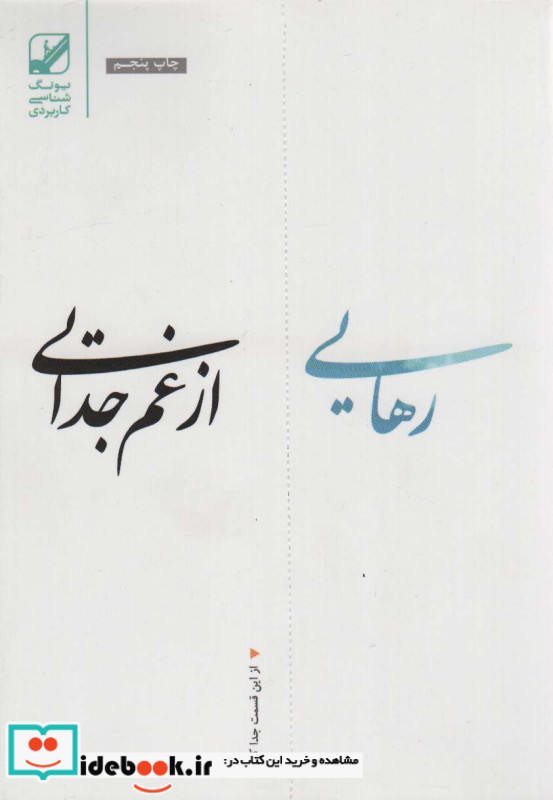 چاپ پنجم
یونگ
شناسی
کاربردی
رهایی
از غم جدایی
از این قسمت جدا
مشاهده و خرید این کتاب در:
idebook.ir